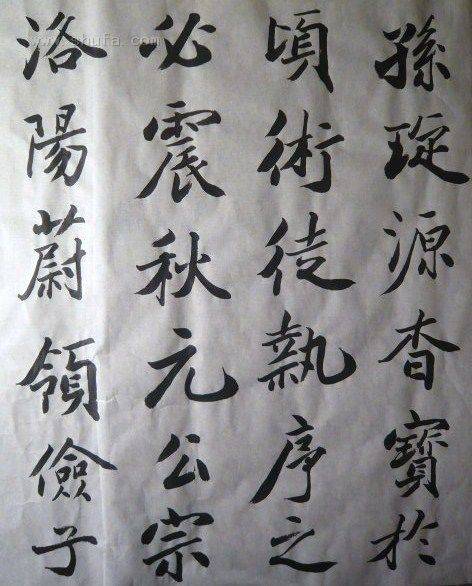 孫源杳寶於
頃術徒執序之
必震秋元公宗
洛陽蔚領儉子
www.shufa.com